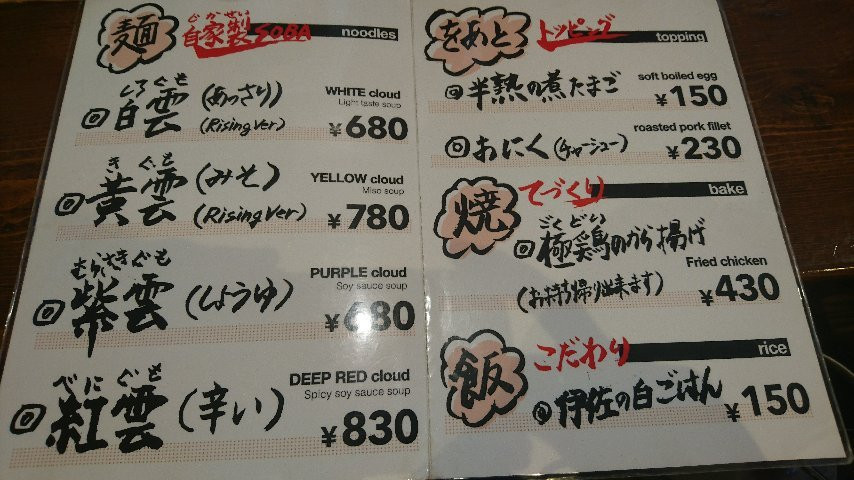 麺 じかせい 自家製 SOBA noodles
しろくも
白雲 (あっさり) WHITE cloud
Light taste soup
(Rising Ver) ¥680
きぐも
黄雲 (みそ) YELLOW cloud
Miso soup
(Rising Ver) ¥780
むらさきぐも
紫雲 (しょうゆ) PURPLE cloud
Soy sauce soup
¥680
べにぐも
紅雲 (辛い) DEEP RED cloud
Spicy soy sauce soup
¥830
をあと トッピング topping
半熟の煮たまご soft boiled egg
¥150
おにく (チャーシュー) roasted pork fillet
¥230
焼 てづくり bake
ごくどい
極鶏のから揚げ
Fried chicken
(お持ち帰り出来ます) ¥430
飯 こだわり rice
伊佐の白ごはん ¥150